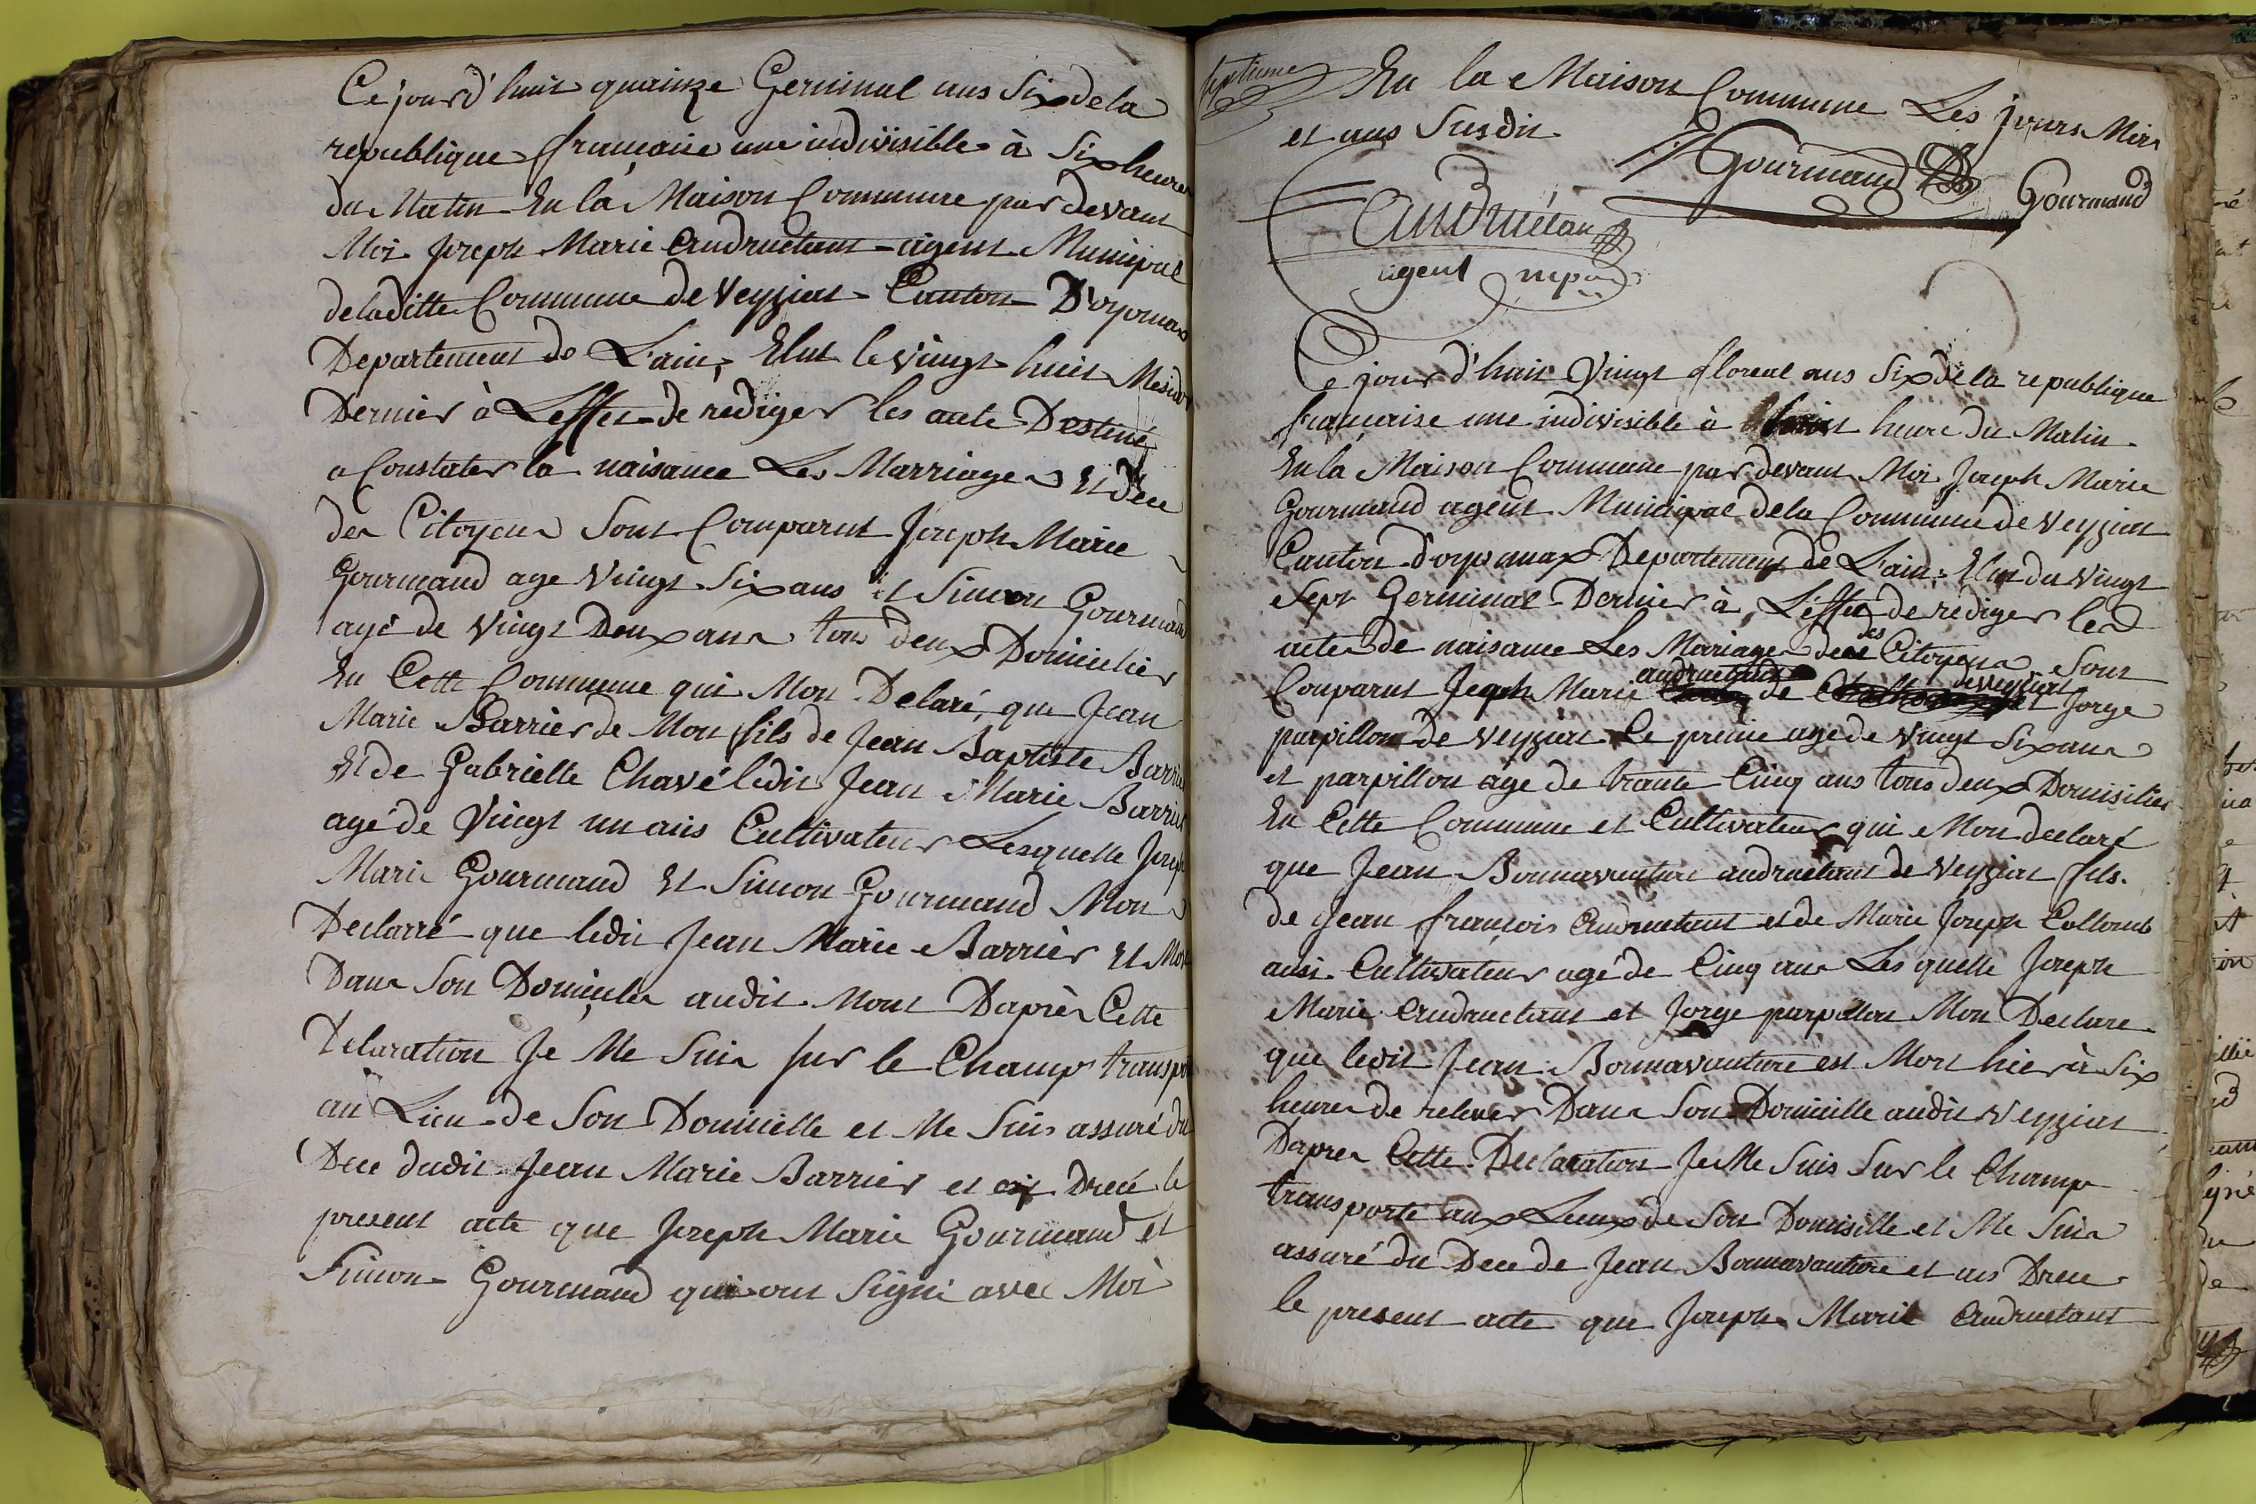 Ce jourd'huit quainze Germinal ans Six de la
republique francaise une indivisible à Six heures
du Matin En la Maison Commune par devant
Moi Joseph Marie Andruetant agent Municipal
de laditte Commune de Veyziat Canton D'oyonnax
Departement de L'ain, Elut le vingt huit Mesidor
Dernier à L'effet de rediger les acte Destiné
a Constater la naisance Les Marriages Et Dece
des Citoyens Sont Comparut Joseph Marie
Gourmand age Vingt Six ans et Simon Gourmand
agé de Vingt Deux ans tous deux Domicilier
En Cette Commune qui Mon Delaré, que Jean
Marie Barrier de Mon fils de Jean Baptiste Barrier
Et de Gabrielle Chavé ledit Jean Marie Barrier
agé de Vingt un ans Cultivateur Lesquelle Joseph
Marie Gourmand Et Simon Gourmand Mon
Declarré que ledit Jean Marie Barrier Et Mort
Dans Son Domicile audit Mont Daprès Cette
Delaration Je Me Suis sur le Champ transporté
au Lieu de Son Domicille et Me Suis assuré du
Dece dudit Jean Marie Barrier et Dreé le
present acte que Joseph Marie Gourmand et
Simon Gourmand qui ont Signé avec Moi
septieme
En la Maison Commune Les jours Mois
et ans Susdit
Gourmand Gourmand
Andruétan
agent mpal
Ce jourd'huit Vingt floreal ans Six de la republique
francaise une indivisible à huit heure du Matin
En la Maison Commune par devant Moi Joseph Marie
Gourmand agent Municipal de la Commune de Veyziat
Canton d'oyonnax Departement de L'ain, Elut du Vingt
Sept Germinal Dernier à L'effet de rediger les
actes de naisance Les Mariages des Citoyens Sont
Comparut Joseph Marie andruetant de veyziat et Jorge
parpillon de Veyziat Le premie agé de Vingt Six ans
et parpillon age de trante Cinq ans tous deux Domisilier
En Cette Commune et Cultivateur qui Mon declaré
que Jean Bonnavanture andruetant de Veyziat fils
de Jean francois Andruetant et de Marie Joseph Collomb
ausi Cultivateur agé de Cinq ans Les quelle Joseph
Marie Andruetant et Jorge parpillon Mon Declare
que ledit Jean Bonnavanture est Mort hier à Six
heures de relever Dans Son Domicille audit Veyziat
Dapres Cette Declaration Je Me Suis Sur le Champ
transporté aux Leux de Son Domisille et Me Suis
assuré du Dece de Jean Bonnavanture et ais Dreé
le present acte que Joseph Marie Andruetant